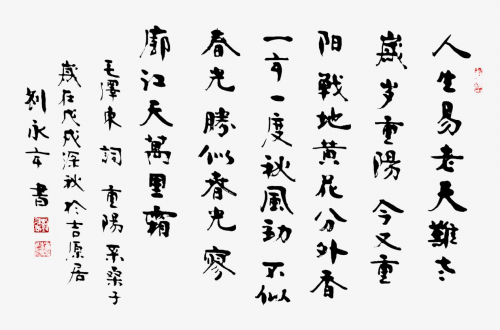 人生易老天難老
歲岁重陽今又重
陽戰地黃花分外香
一年一度秋風勁不似
春光勝似春光寥
廓江天萬里霜
毛澤東詞重陽采桑子
歲在戊戌深秋於吉源居
劉永年書